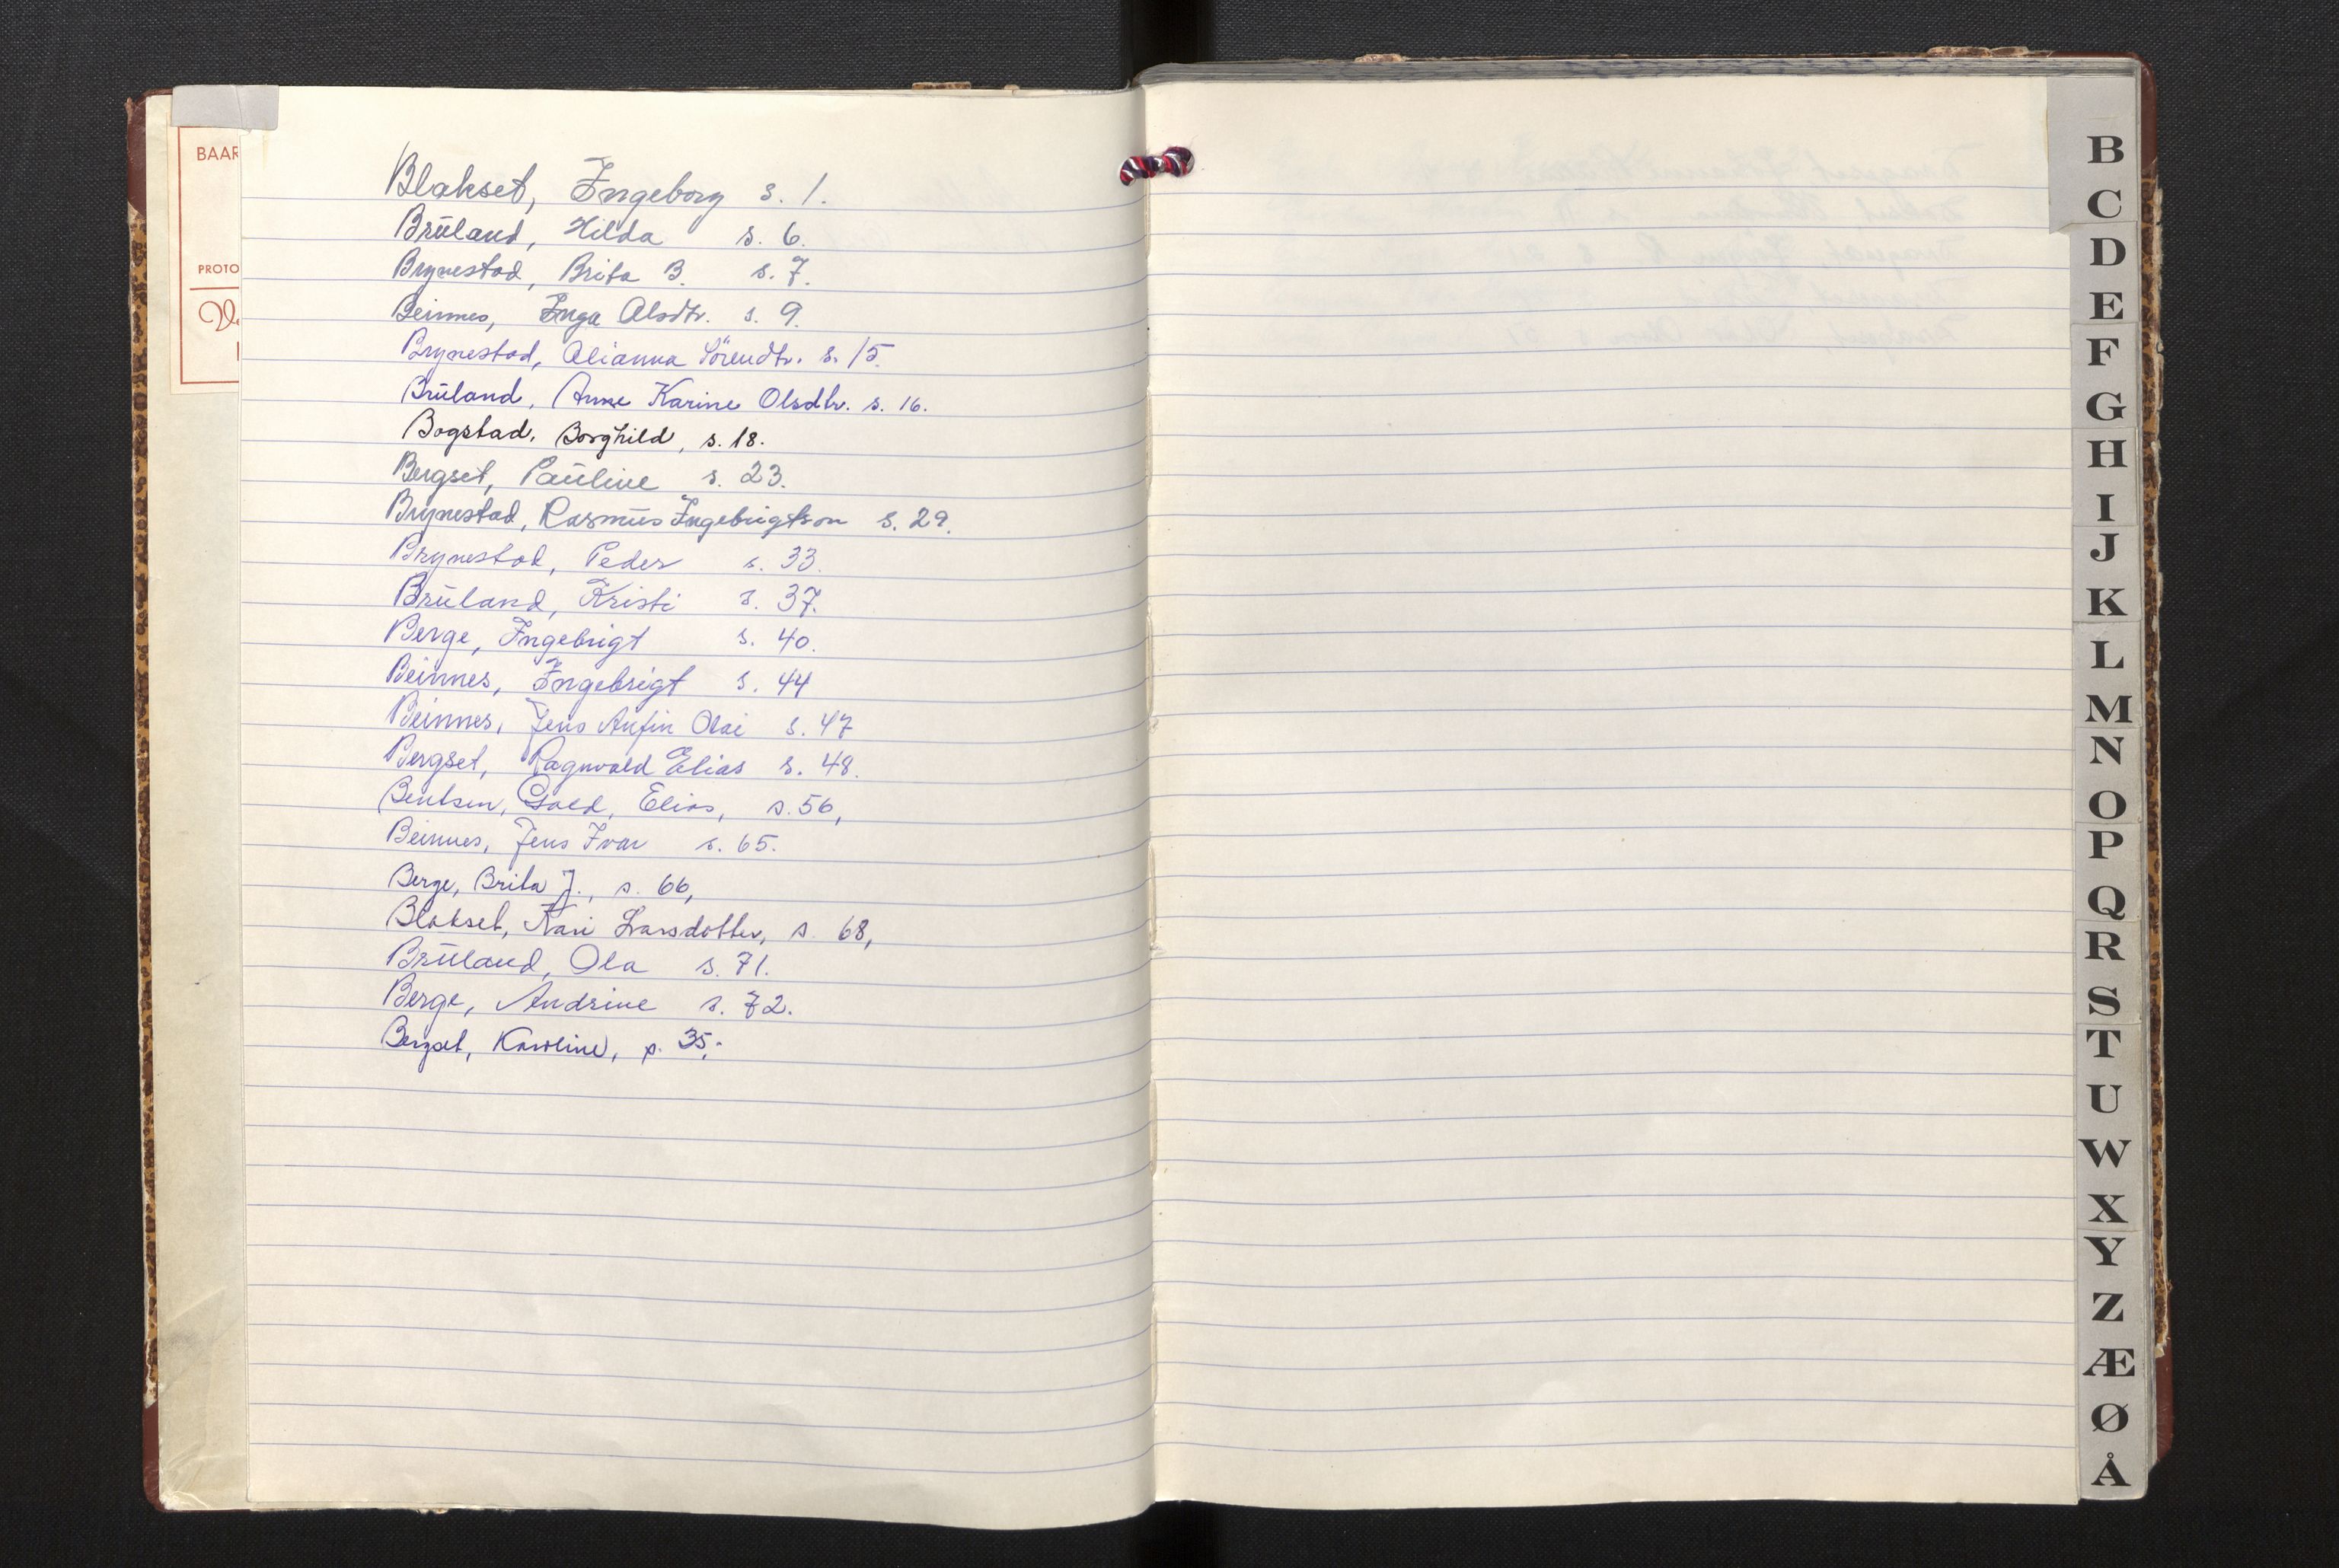 BAAR
PROTO
Blakset, Ingeborg s. 1.
Brüland, Hilda s. 6.
Brynestad, Brita B. s. 7.
Beinnes, Inga Alsdtr. s. 9.
Brynestad, Alianna Sörendtr. s. 15.
Brüland, Anne Karine Olsdtr. s. 16.
Bogstad, Borghild, s. 18.
Bergset, Pauline s. 23.
Brynestad, Rasmus Ingebrigtson s. 29.
Brynestad, Peder s. 33.
Brüland, Kristi s. 37.
Berge, Ingebrigt s. 40.
Beinnes, Ingebrigt s. 44
Beinnes, Jens Anfin Olai s. 47
Bergset, Ragnvald Elias s. 48.
Bentsen, Elias, s. 56,
Beinnes, Jens Ivar s. 65.
Berge, Brita J., s. 66,
Blakset, Kari Larsdotter, s. 68,
Brüland, Ola s. 71.
Berge, Andrine s. 72.
Bergset, Karoline, s. 35,-
B
C
D
E
F
G
H
I
J
K
L
M
N
O
P
Q
R
S
T
U
W
X
Y
Z
Æ
Ø
Å